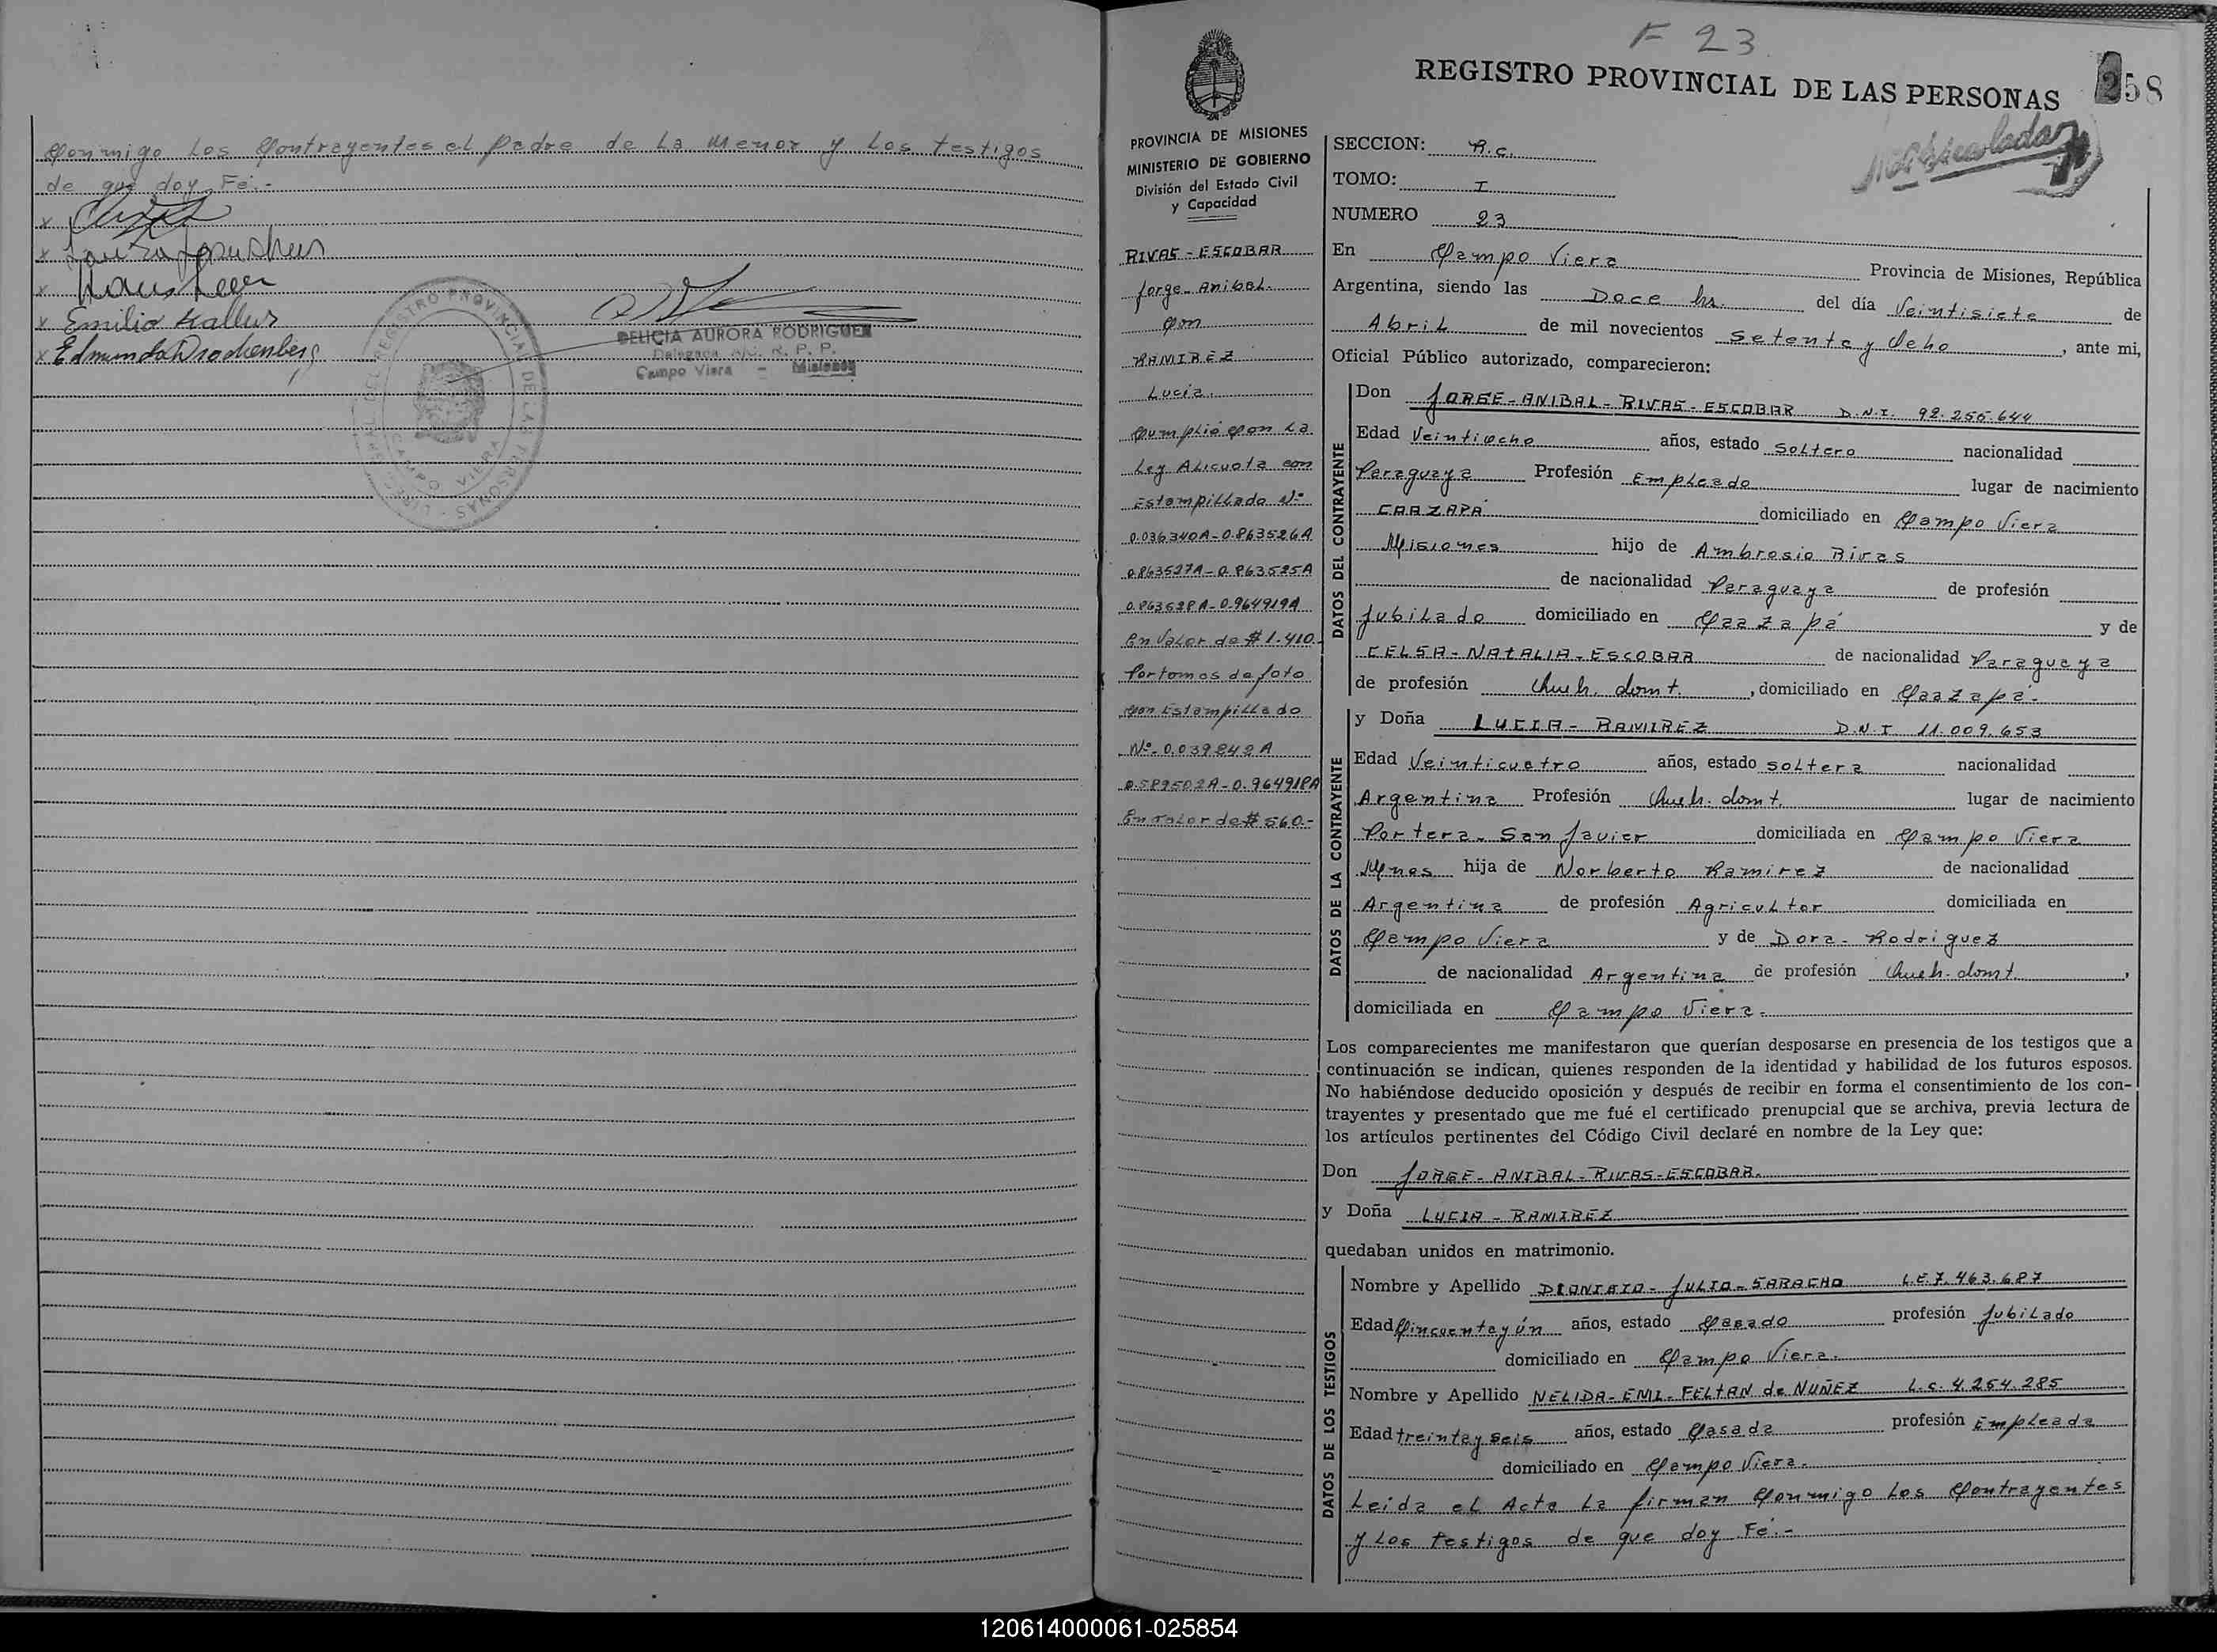 Conmigo Los Contrayentes el Padre de La Menor y Los testigos
de que doy Fé.-
x
x
x
x Emilio Kallus
x Edmundo Drachenberg
DELICIA AURORA RODRIGUEZ
Delegada A/C. R. P. P.
Campo Viera - Misiones
REGISTRO PROVINCIAL DE LAS PERSONAS
CAMPO VIERA
F 23
258
REGISTRO PROVINCIAL DE LAS PERSONAS
PROVINCIA DE MISIONES
MINISTERIO DE GOBIERNO
División del Estado Civil
y Capacidad
RIVAS - ESCOBAR
Jorge - Anibal.
Con
RAMIREZ
Lucia.
Cumplió Con La
Ley Alicuota con
Estampillado Nº
0.036340A - 0.863526A
0.863527A - 0.863525A
0.863528A - 0.964919A
En Valor de $ 1.410.-
Por tomas de foto
Con Estampillado
Nº. 0.039242A
0.589502A - 0.964918A
En valor de $ 560.-
SECCION: R.C.
TOMO: I
NUMERO 23
En Campo Viera Provincia de Misiones, República
Argentina, siendo las Doce hs. del día Veintisiete de
Abril de mil novecientos Setenta y Ocho, ante mi,
Oficial Público autorizado, comparecieron:
DATOS DEL CONTRAYENTE
Don JORGE - ANIBAL - RIVAS - ESCOBAR D.N.I. 92.255.644
Edad Veintiocho años, estado Soltero nacionalidad
Paraguaya Profesión Empleado lugar de nacimiento
CAAZAPÁ domiciliado en Campo Viera
Misiones hijo de Ambrosio Rivas
de nacionalidad Paraguaya de profesión
Jubilado domiciliado en Caazapá y de
CELSA - NATALIA - ESCOBAR de nacionalidad Paraguaya
de profesión Queh. domt., domiciliado en Caazapá.-
DATOS DE LA CONTRAYENTE
y Doña LUCIA - RAMIREZ D.N.I 11.009.653
Edad Veinticuatro años, estado soltera nacionalidad
Argentina Profesión Queh. domt. lugar de nacimiento
Portera - San Javier domiciliada en Campo Viera
Mnes hija de Norberto Ramirez de nacionalidad
Argentina de profesión Agricultor domiciliada en
Campo Viera y de Dora - Rodriguez
de nacionalidad Argentina de profesión Queh. domt.,
domiciliada en Campo Viera.
Los comparecientes me manifestaron que querían desposarse en presencia de los testigos que a
continuación se indican, quienes responden de la identidad y habilidad de los futuros esposos.
No habiéndose deducido oposición y después de recibir en forma el consentimiento de los con-
trayentes y presentado que me fué el certificado prenupcial que se archiva, previa lectura de
los artículos pertinentes del Código Civil declaré en nombre de la Ley que:
Don JORGE - ANIBAL - RIVAS - ESCOBAR.
y Doña LUCIA - RAMIREZ
quedaban unidos en matrimonio.
DATOS DE LOS TESTIGOS
Nombre y Apellido DIONISIO - JULIO - SARACHO L.E. 7.463.687
Edad Cincuenta y ún años, estado Casado profesión Jubilado
domiciliado en Campo Viera.
Nombre y Apellido NELIDA - EMI - FELTAN de NUÑEZ L.C. 4.254.285
Edad treinta y seis años, estado Casada profesión Empleada
domiciliado en Campo Viera.
Leida el Acta La firman Conmigo Los Contrayentes
y Los testigos de que doy Fé.-
120614000061-025854